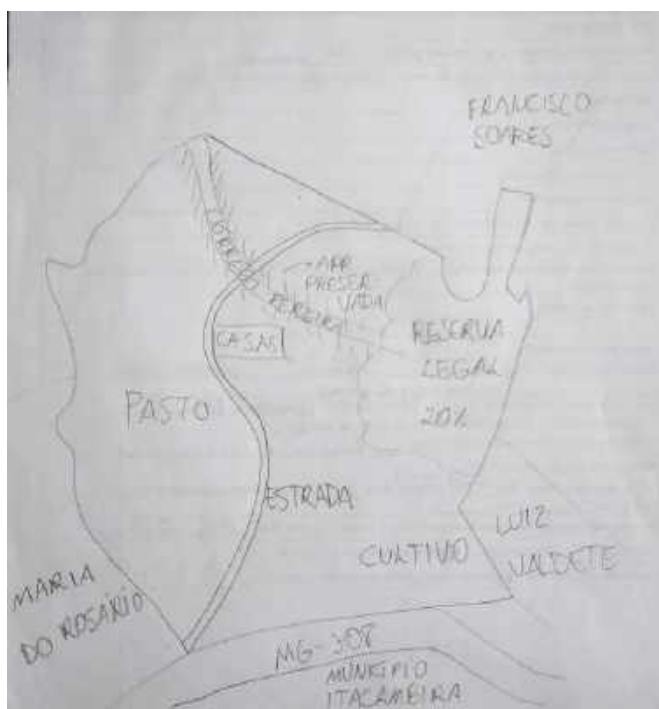 FRANCISCO
SOARES
CORREGO
PEREIRA
APP
PRESER
VADA
CASAS
RESERVA
LEGAL
20%
PASTO
ESTRADA
CULTIVO
LUIZ
VALDETE
MARIA
DO ROSÁRIO
MG-308
MUNICIPIO
ITACAMBIRA